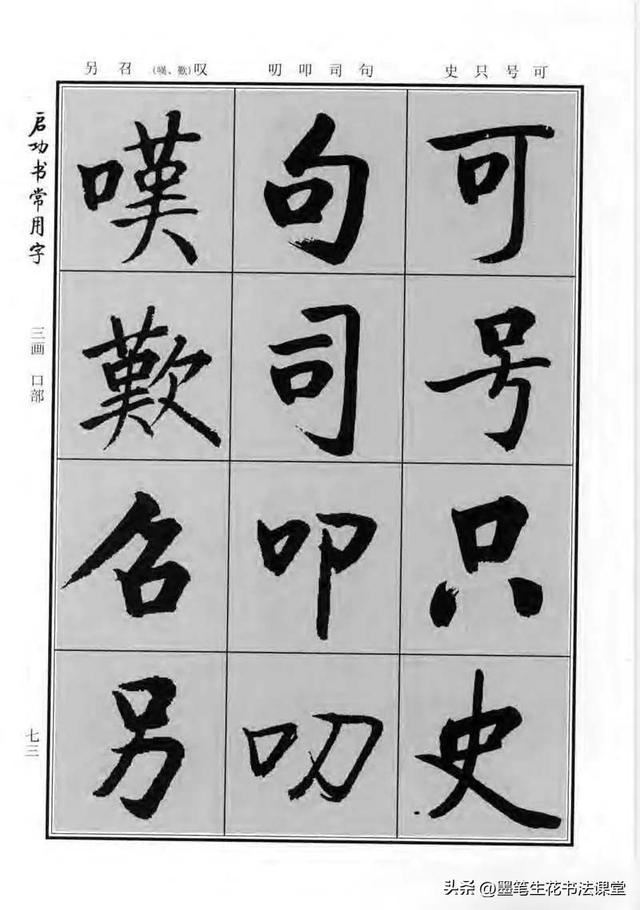 可号只史
句司叩叨
叹(嘆、歎)召另
可号只史
句司叩叨
嘆歎召另
启功书常用字
三画 口部
七三
头条 @墨笔生花书法课堂